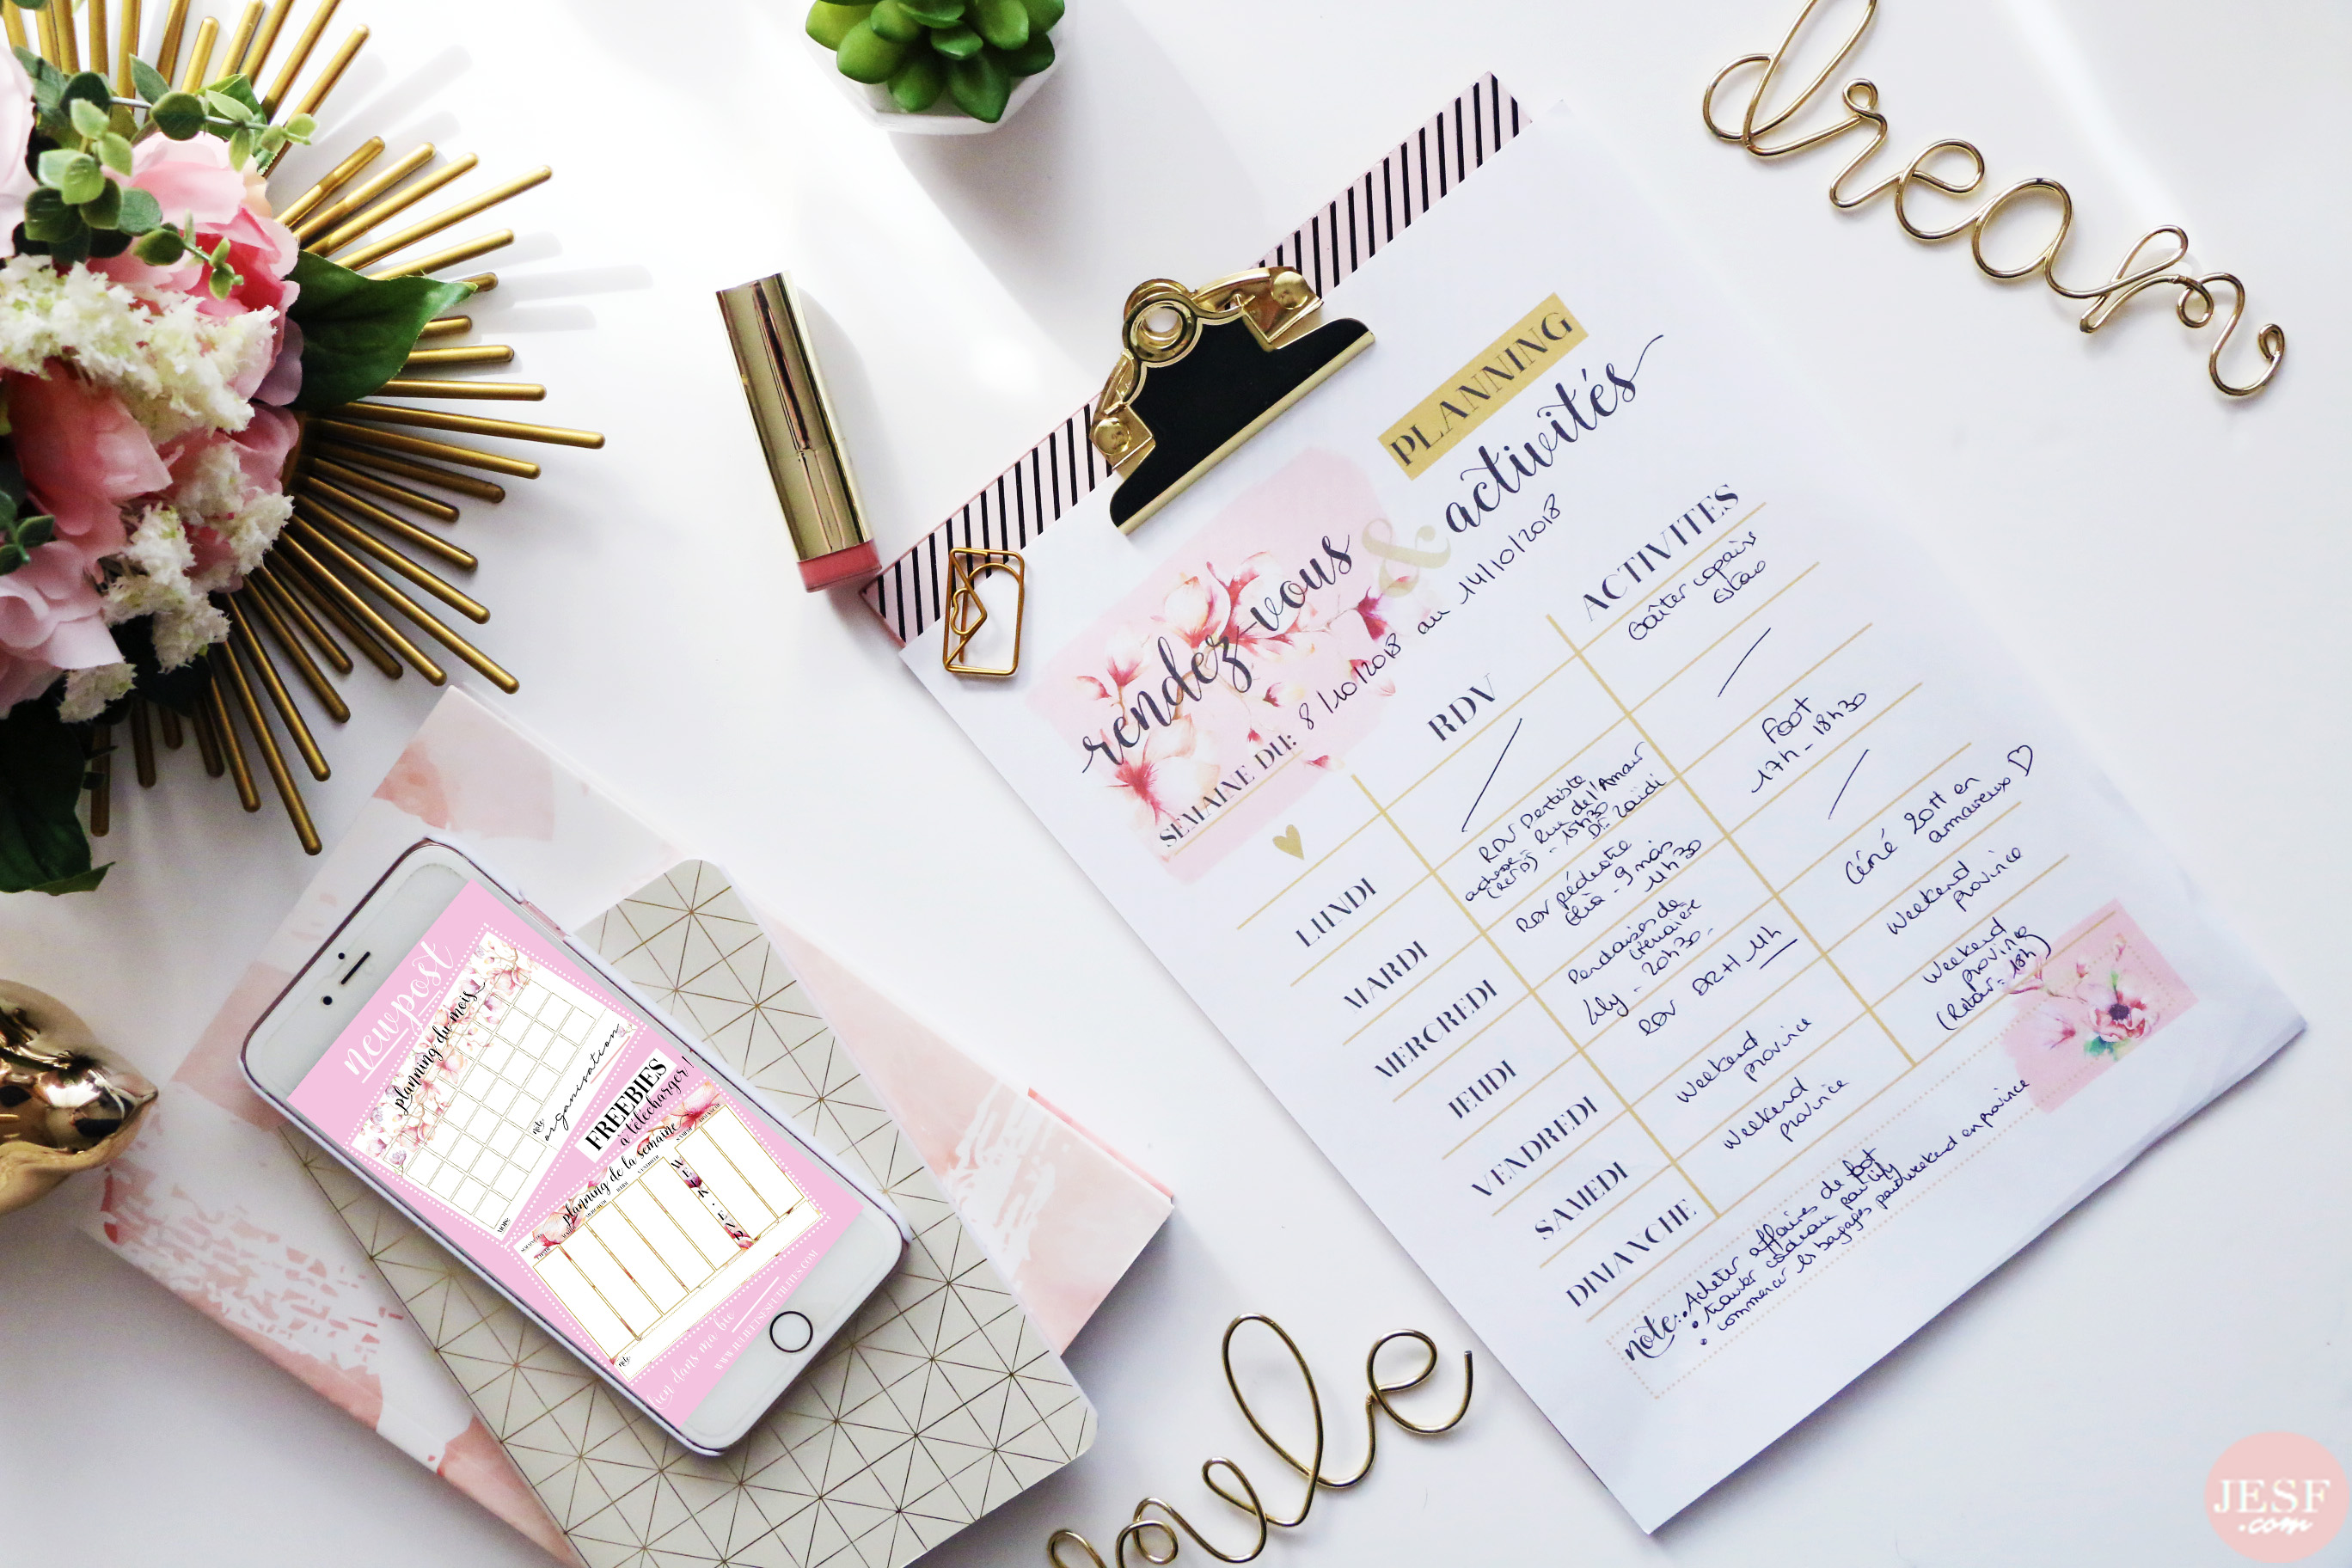 dream
PLANNING
rendez-vous & activités
SEMAINE DU: 8/10/2018 au 14/10/2018
RDV
ACTIVITES
LUNDI
Goûter copains
MARDI
RDV Dentiste
Rue de l'Amour
15h30
MERCREDI
RDV pédiatre
9 mois
11h30
Foot
17h - 18h30
JEUDI
Lily - 20h30
VENDREDI
RDV DRH 11h
Ciné 20H en
amoureux ♡
SAMEDI
Weekend
province
Weekend
province
DIMANCHE
Weekend
province
Weekend
province
(Retour = 18h)
note: • Acheter affaires de foot
• trouver cadeau pour Lily
• commencer les bagages pour weekend en province
newpost
planning du mois
MOIS:
note:
organisation
FREEBIES
à télécharger !
planning de la semaine
WEEK-END
note:
lien dans ma bio
WWW.JULIETTESESFUTILITES.COM
JESF
.com